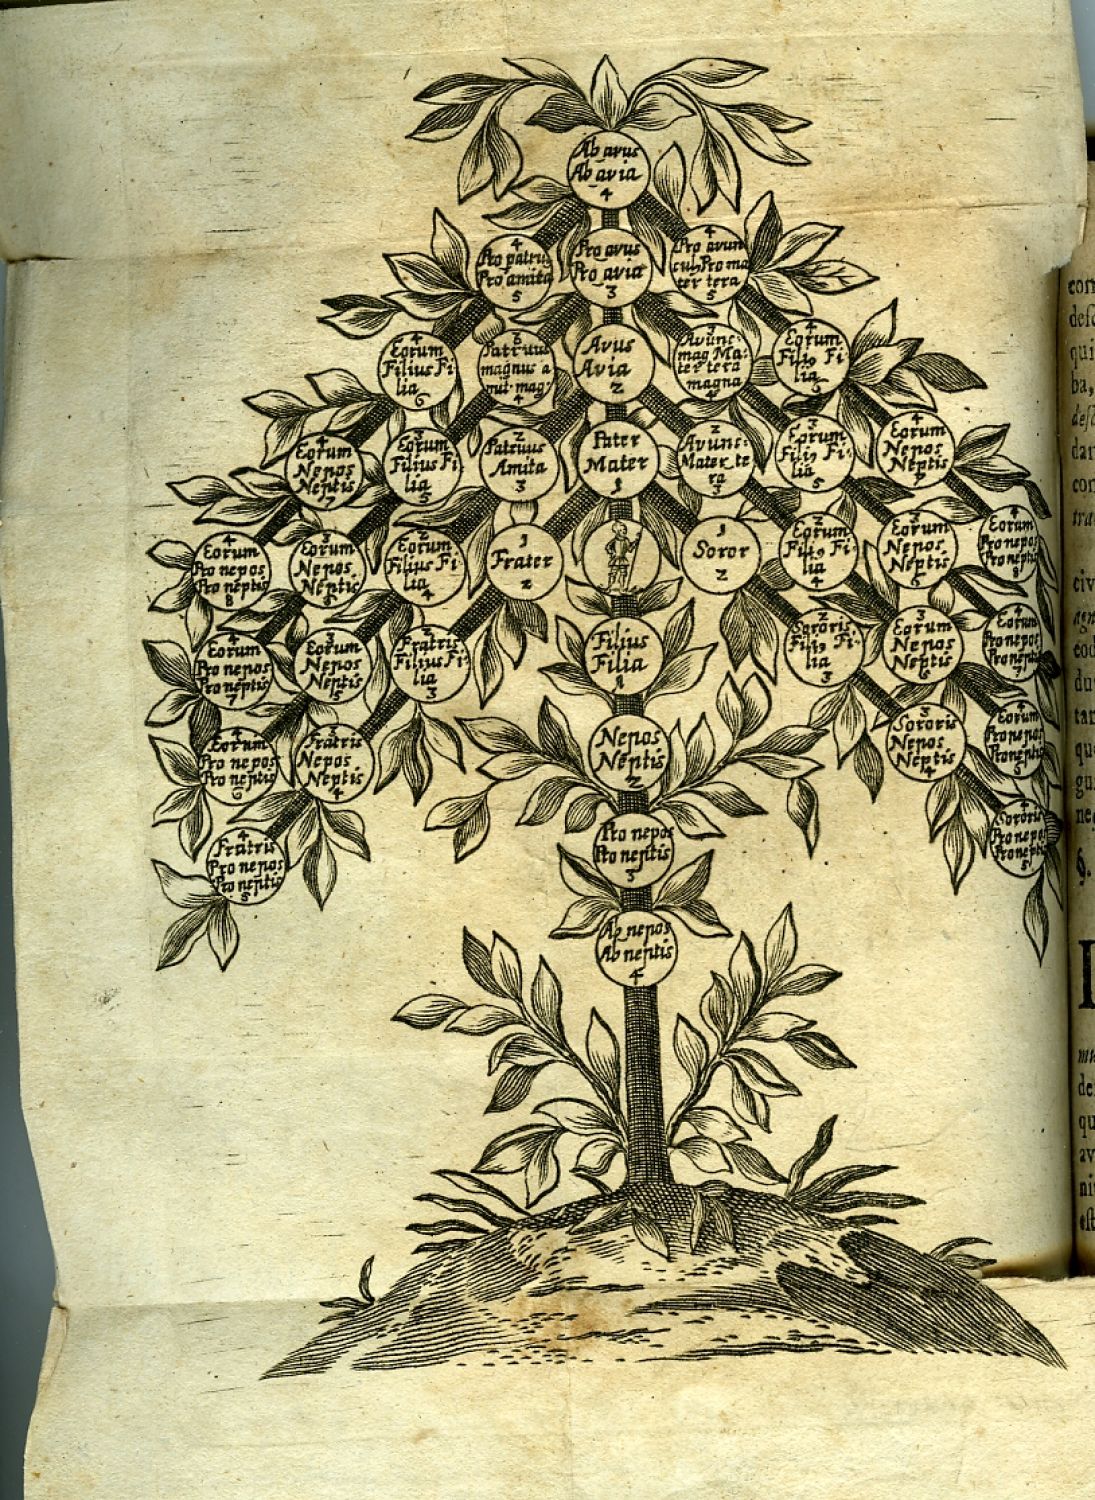 Ab avus
Ab avia
4
4
Pro patru9
Pro amita
5
Pro avus
Pro avia
3
4
Pro avun
cul9 Pro ma
ter tera
5
4
Eorum
Filius Fi
lia
6
3
Patruus
magnus a
mit. mag.
4
Avus
Avia
2
3
Avunc.
mag Ma:
ter tera
magna
4
4
Eorum
Fili9 Fi
lia
4
Eorum
Nepos
Neptis
7
3
Eorum
Filius Fi
lia
5
2
Patruus
Amita
3
Pater
Mater
1
2
Avunc:
Mater te
ra
3
3
Eorum
Fili9 Fi:
lia
5
4
Eorum
Nepos
Neptis
4
Eorum
Pro nepos
Pro neptis
8
3
Eorum
Nepos
Neptis
6
2
Eorum
Filius Fi
lia
4
1
Frater
2
1
Soror
2
2
Eorum
Fili9 Fi
lia
4
3
Eorum
Nepos
Neptis
6
4
Eorum
Pro nepos
Pro neptis
8
4
Eorum
Pro nepos
Pro neptis
7
3
Eorum
Nepos
Neptis
5
2
Fratris
Filius Fi:
lia
3
Filius
Filia
1
2
Sororis
Fili9 Fi:
lia
3
3
Eorum
Nepos
Neptis
4
Eorum
Pro nepos
Pro neptis
7
4
Eorum
Pro nepos
Pro neptis
6
3
Fratris
Nepos
Neptis
4
Nepos
Neptis
2
3
Sororis
Nepos
Neptis
4
4
Eorum
Pro nepos
Pro neptis
4
Fratris
Pro nepos
Pro neptis
5
Pro nepos
Pro neptis
3
4
Sororis
Pro nepos
Pro neptis
5
Ab nepos
Ab neptis
4
qui
ba,
civ
§.